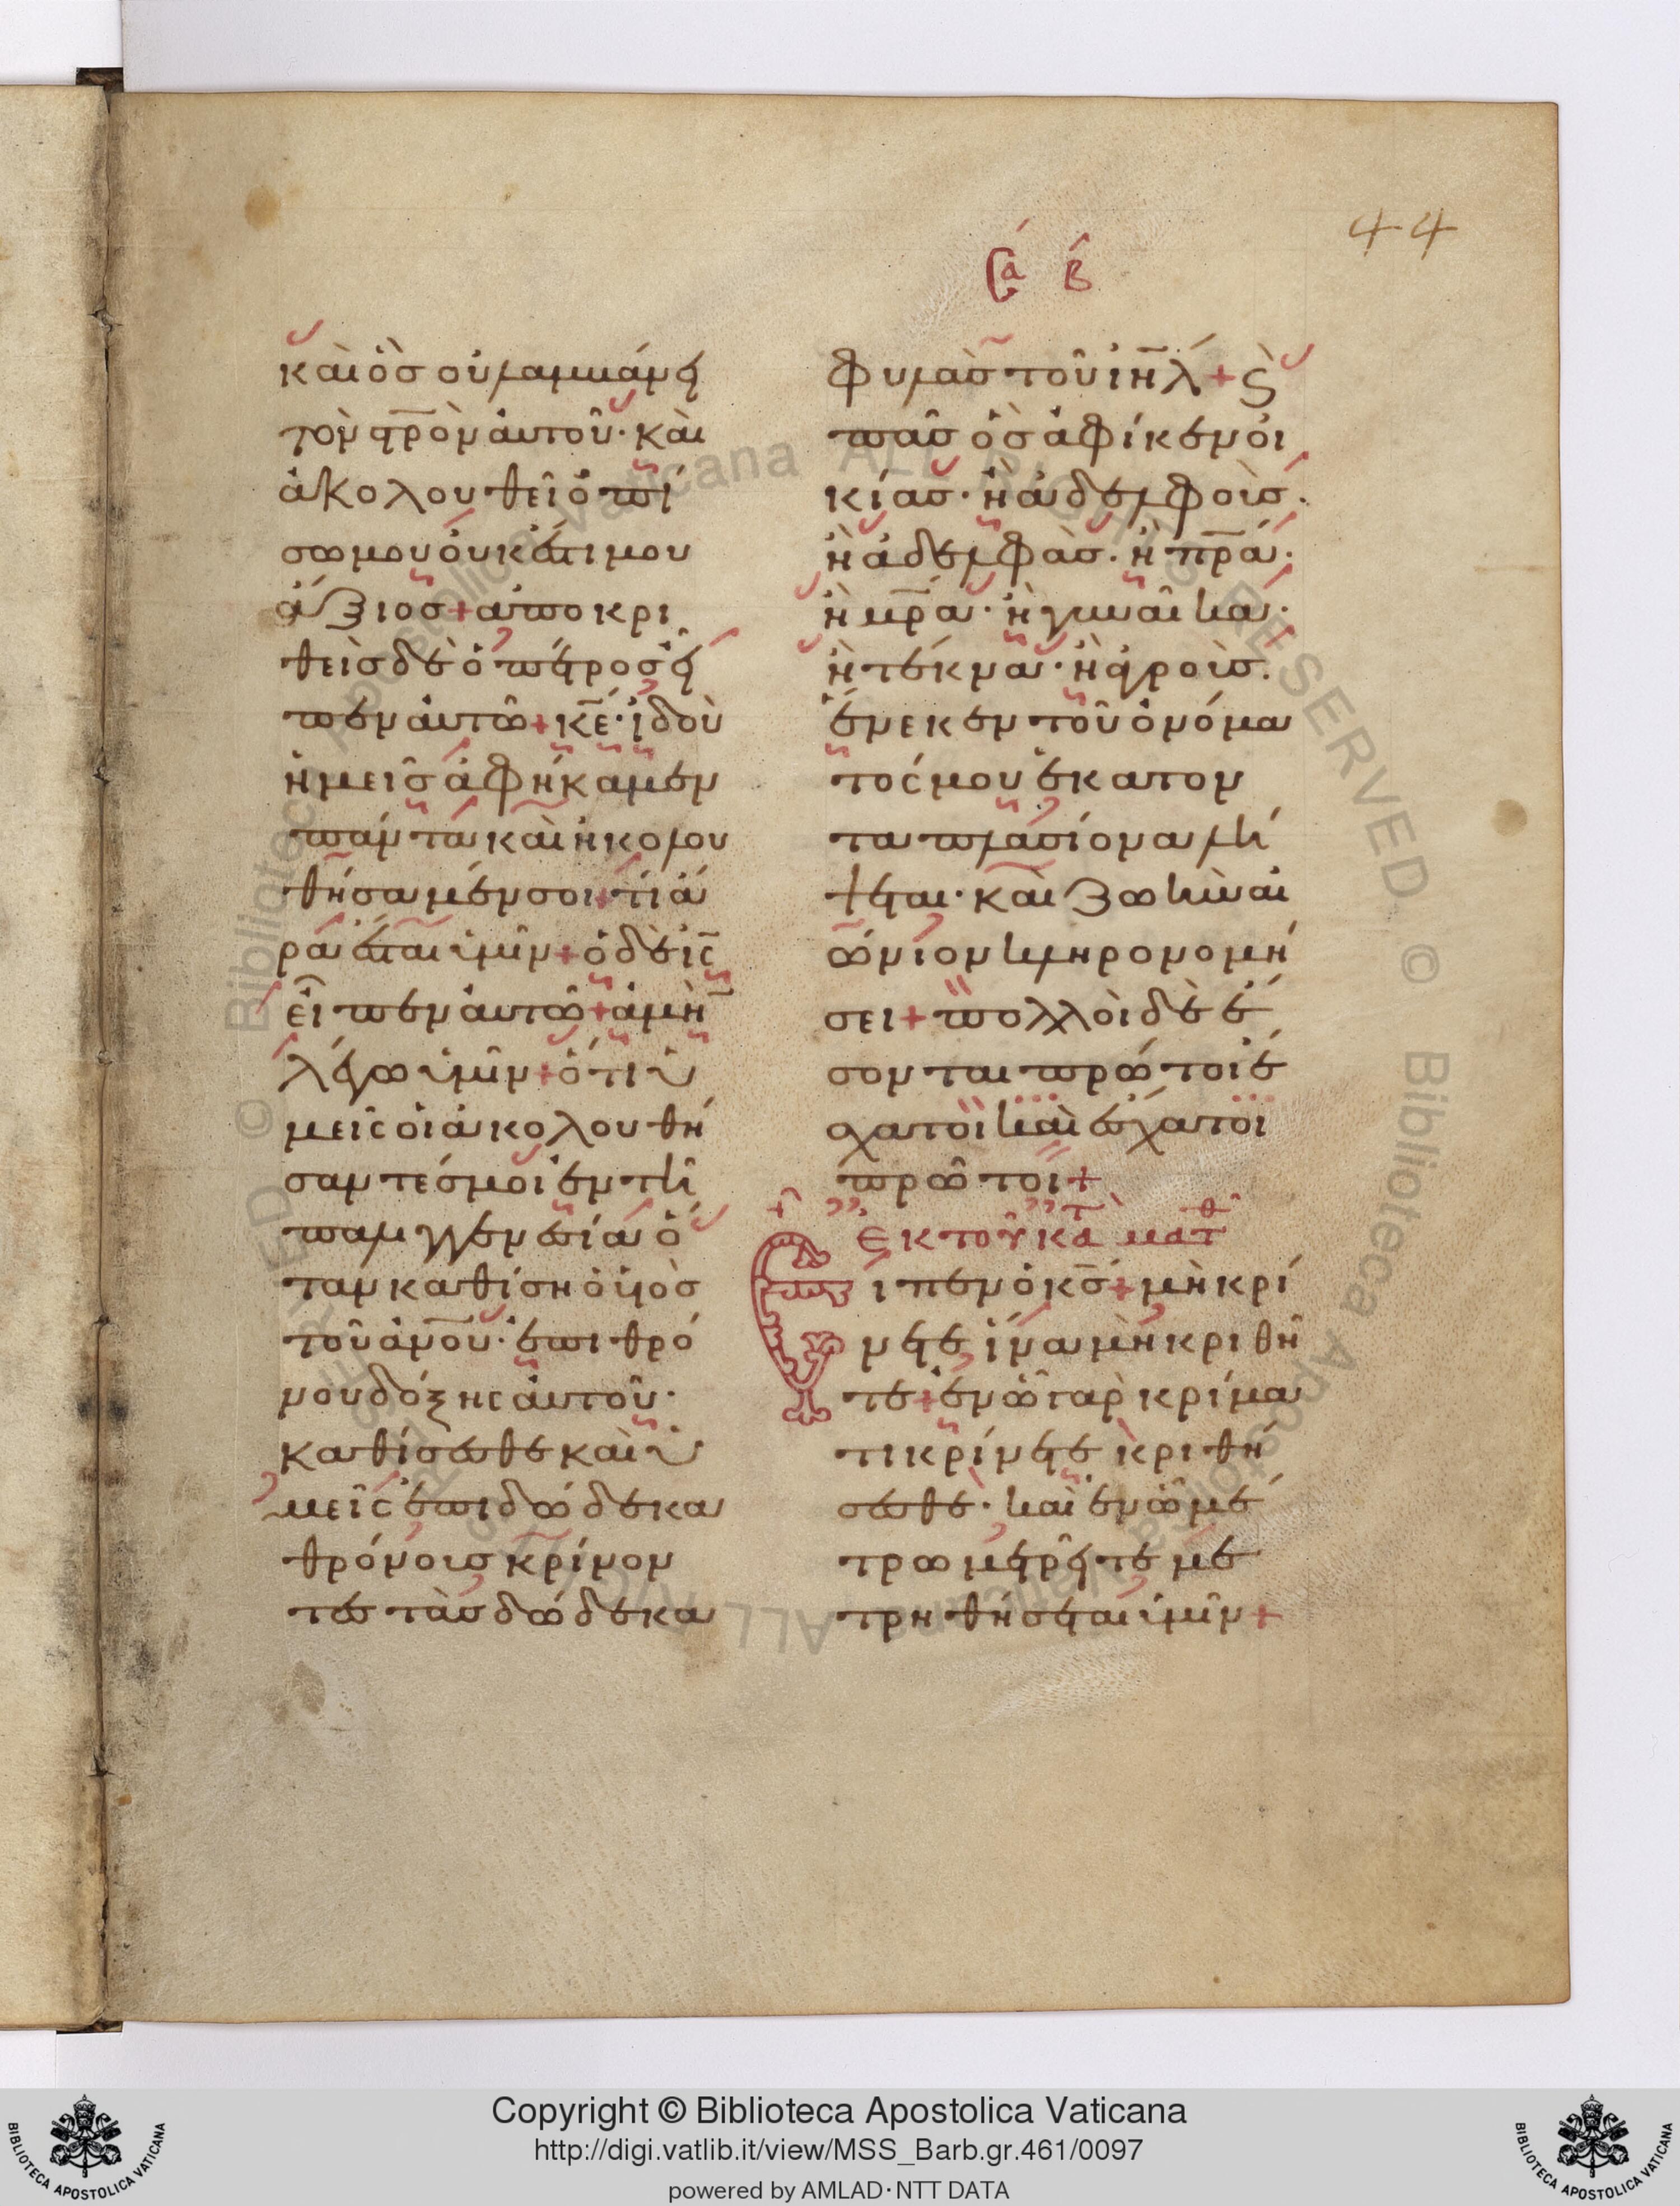 44
Σά Β
καὶ ὃσ οὐ λαμβάνει
τὸν στρὸν ἀυτοῦ· καὶ
ἀκολουθεῖ ὀπί
σω μου ὀυκ ἔστι μου
ἄξιοσ + ἀποκρι
θεὶσ δὲ ὁ πέτροσ εἶ
πεν ἀυτῶ + κε· ἰδοὺ
ἡμεῖσ ἀφήκαμεν
πάντα καὶ ἠκολου
θήσαμέν σοι + τί ἄ
ρα ἔσται ὑμῖν + ὁ δὲ ις
εἶπεν ἀυτῶ + ἀμὴ
λέγω ὑμῖν + ὅτι ὑ
μεῖς οἱ ἀκολουθή
σαντές μοι ἐν τῆ
παλιγγενεσία ὅ
ταν καθίση ὁ ὑιὸσ
τοῦ ανου· ἐπι θρό
νου δόξης ἀυτοῦ·
καθίσεσθε καὶ ὑ
μεῖς ἐπι δώδεκα
θρόνουσ κρίνον
τεσ τὰσ δώδεκα
φυλὰσ τοῦ ιηλ + Ϛ
πᾶσ ὃσ ἀφίκεν ὀι
κίασ· ἢ ἀδελφοὺσ·
ἢ ἀδελφὰσ· ἢ πρα·
ἢ μρα· ἢ γυναῖκα·
ἢ τέκνα· ἢ ἀγροὺσ·
ἕνεκεν τοῦ ὀνόμα
τός μου ἑκατον
ταπλασίονα λή
ψεται· καὶ ζωὴν αἰ
ώνιον κληρονομή
σει + πολλοὶ δὲ ἔ
σονται πρώτοι ἔ
σχατοι καὶ ἔσχατοι
πρῶτοι +
Εκ τοῦ κατὰ ματθ
Ειπεν ὁ κς + μὴ κρί
νετε ἵνα μὴ κριθῆ
τε + ἐν ὧ γαρ κρίμα
τι κρίνετε κριθή
σεσθε· καὶ ἐν ὧ μέ
τρω μετρεῖτε με
τρηθήσεται ὑμῖν +
Copyright © Biblioteca Apostolica Vaticana
http://digi.vatlib.it/view/MSS_Barb.gr.461/0097
powered by AMLAD·NTT DATA